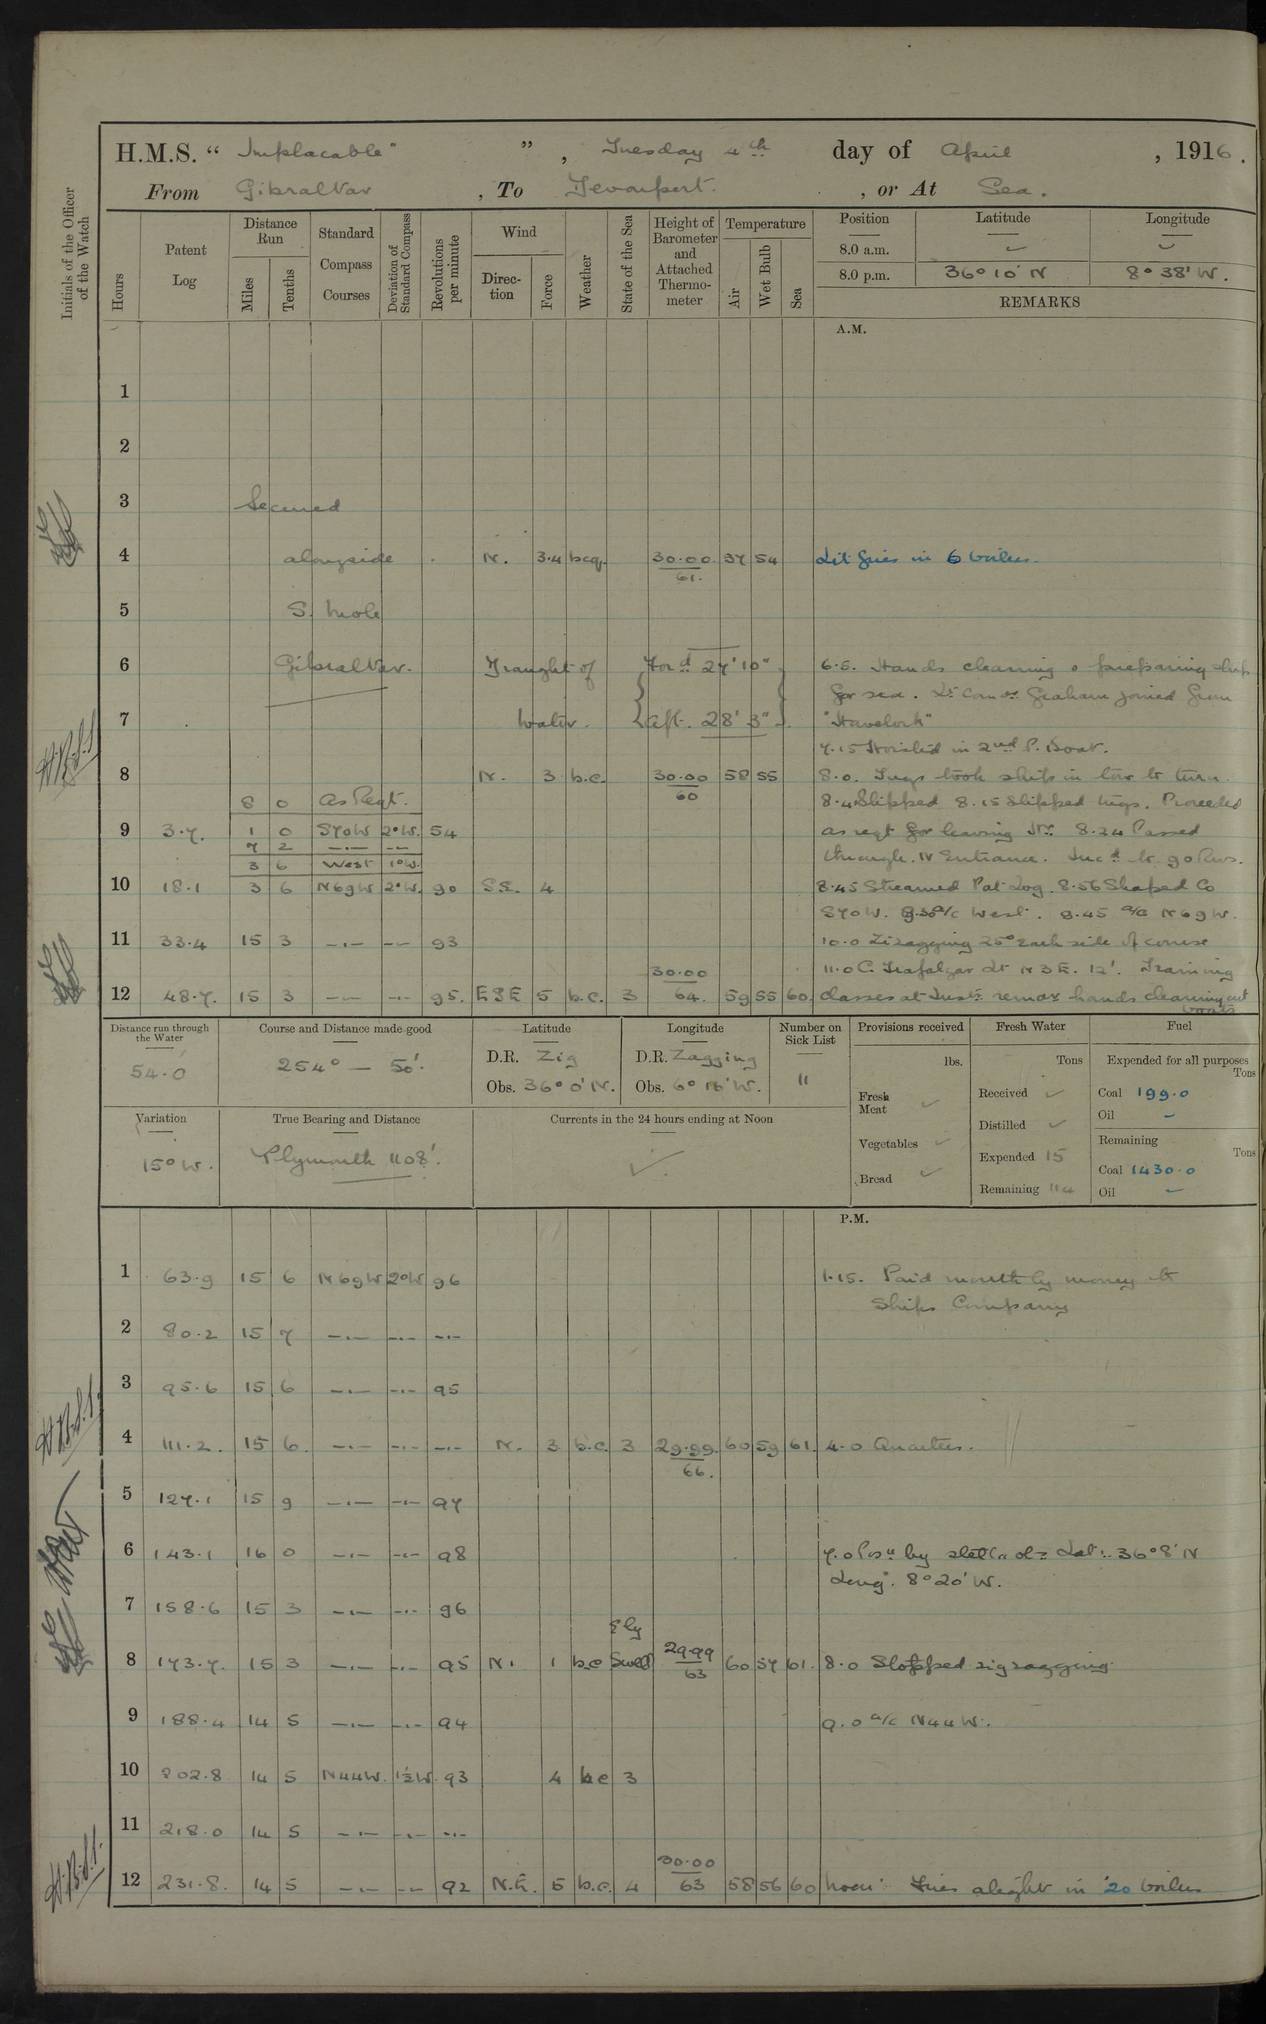 H.M.S. " Implacable" " , Tuesday 4th day of April , 1916.
From Gibraltar , To Devonport. , or At Sea.
Initials of the Officer of the Watch
Hours
Patent Log
Distance Run
Miles
Tenths
Standard Compass Courses
Deviation of Standard Compass
Revolutions per minute
Wind
Direction
Force
Weather
State of the Sea
Height of Barometer and Attached Thermometer
Temperature
Air
Wet Bulb
Sea
Position Latitude Longitude
8.0 a.m. ✓ ✓
8.0 p.m. 36° 10' N 8° 38' W.
REMARKS
A.M.
1
2
3 Secured
4 alongside N. 3.4 bcq. 30.00 57 54 Lit fires in 6 boilers.
61.
5 S. Mole
6 Gibraltar. Draught of For'd 27' 10" 6.5. Hands cleaning & preparing ship
for sea. Lt Comdr Graham joined from
7 Water. Aft. 28' 3" "Havelock"
7.15 Hoisted in 2nd P. Boat.
8 N. 3 b.c. 30.00 58 55 8.0. Tugs took ship in tow to turn.
60
8 0 As Reqt. 8.4 Slipped 8.15 Slipped tugs. Proceeded
9 3.7. 1 0 S70W 2°W. 54 as reqt for leaving Hr. 8.24 Passed
7 2 —.— —— through N Entrance. Incd to 90 Revs.
3 6 West 1°W.
10 18.1 3 6 N69W 2°W. 90 S.E. 4 8.45 Streamed Pat Log. 8.56 Shaped Co
S70W. 9.30 a/c West. 9.45 a/c N69W.
11 33.4 15 3 —.— —— 93 10.0 Zizagging 25° each side of course
30.00 11.0 C. Trafalgar Lt N3E. 12'. Training
12 48.7. 15 3 —— —.— 95. ESE 5 b.c. 3 64. 59 55 60. classes at Instn remdr hands cleaning out
boats
Distance run through the Water
54.0
Course and Distance made good
254° — 50'.
Latitude
D.R. Zig
Obs. 36° 0' N.
Longitude
D.R. Zagging
Obs. 6° 16' W.
Number on Sick List
11
Provisions received
lbs.
Fresh Meat ✓
Vegetables ✓
Bread ✓
Fresh Water
Tons
Received ✓
Distilled ✓
Expended 15
Remaining 114
Fuel
Expended for all purposes
Tons
Coal 199.0
Oil –
Remaining
Tons
Coal 1430.0
Oil –
Variation
15° W.
True Bearing and Distance
Plymouth 1108'.
Currents in the 24 hours ending at Noon
✓
P.M.
1 63.9 15 6 N69W 2°W 96 1.15. Paid monthly money to
Ships Company
2 80.2 15 7 —.— —.— —.—
3 95.6 15 6 —.— —.— 95
4 111.2. 15 6. —.— —.— —.— N. 3 b.c. 3 29.99. 60 59 61. 4.0 Quarters.
66.
5 127.1 15 9 —.— —.— 97
6 143.1 16 0 —.— —.— 98 7.0 Posn by stellar obs Lat: 36° 8' N
Long. 8° 20' W.
7 158.6 15 3 —.— —.— 96
Ely
8 173.7. 15 3 —.— —.— 95 N. 1 b.c Swell 29.99 60 57 61. 8.0 Stopped zigzagging.
63
9 188.4 14 5 —.— —.— 94 9.0 a/c N44W.
10 202.8 14 5 N44W. 1½W. 93 4 bc 3
11 218.0 14 5 —.— —.— —.—
30.00
12 231.8. 14 5 —.— —— 92 N.E. 5 b.c. 4 63 58 56 60 Noon: Fires alight in 20 boilers